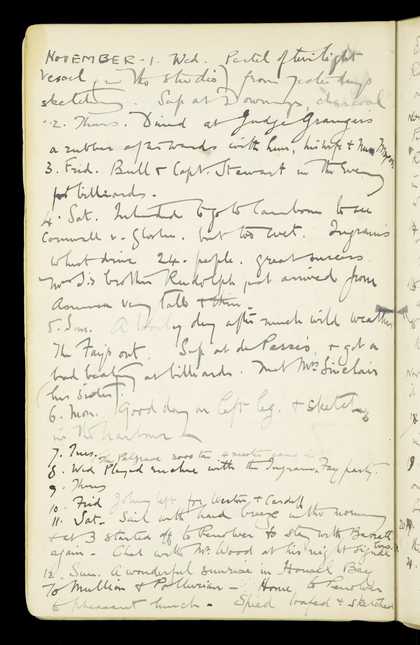 NOVEMBER - 1. Wed. Pastel of twilight
vessel, in the studio, from yesterday's
sketching. Sup at Downings, charcoal
2. Thurs. Dined at Judge Grangers
a rubber afterwards with him, his wife & Mrs
3. Frid. Bull & Capt. Stewart in the Evening
for billiards.
4. Sat. Intended to go to Camborne to see
Cornwall v. Gloster. but too wet. Ingram's
whist drive 24. people. great success.
brother Rudolph just arrived from
America very tall & thin.
5. Sun. A lovely day after much wild weather
The Fairs out. Sup at de and got a
bad beating at billiards. Met Mrs Sinclair
(his sister).
6. Mon. Good day on left leg. & sketching
in the harbour
7. Tues.
8. Wed Played euchre with the Ingrams. Fay party.
9. Thurs
10. Frid left for Weston & Cardiff
11. Sat. Sail with hard breeze in the morning
& at 3 started off to Penolver to stay with Barrett
again. Chat with Mr. Wood at his night signal
12. Sun. A wonderful sunrise in Housel Bay
To Mullion & Polurrian - Home to Penolver
to pheasant lunch - Sped loafed & sketched